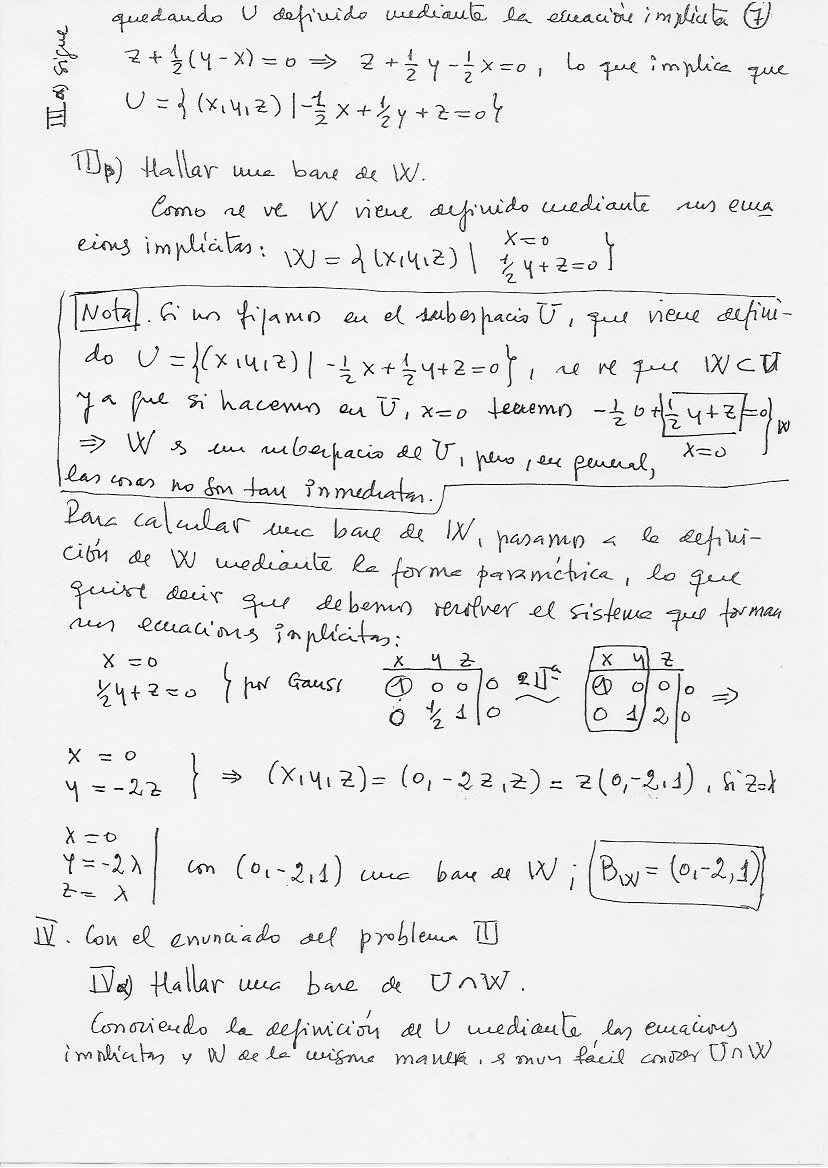 quedando U definido mediante la ecuación implícita (7)
III α) sigue
z + 1/2 (y - x) = 0 ⇒ z + 1/2 y - 1/2 x = 0, lo que implica que
U = { (x,y,z) | -1/2 x + 1/2 y + z = 0 }
III β) Hallar una base de W.
Como se ve W viene definido mediante sus ecua
ciones implícitas: W = { (x,y,z) | x = 0
1/2 y + z = 0 }
Nota. Si nos fijamos en el subespacio U, que viene defini-
do U = { (x,y,z) | -1/2 x + 1/2 y + z = 0 }, se ve que W ⊂ U
ya que si hacemos en U, x=0 tenemos -1/2 0 + 1/2 y + z = 0 } W
⇒ W es un subespacio de U, pero, en general, x=0
las cosas no son tan inmediatas.
Para calcular una base de W, pasamos a la defini-
ción de W mediante la forma paramétrica, lo que
quiere decir que debemos resolver el sistema que forman
sus ecuaciones implícitas:
x = 0
1/2 y + z = 0 } por Gauss
x y z
1 0 0 | 0
0 1/2 1 | 0
2IIª
~
x y z
1 0 0 | 0
0 1 2 | 0
⇒
x = 0
y = -2z } ⇒ (x,y,z) = (0, -2z, z) = z(0,-2,1), si z=λ
x = 0
y = -2λ
z = λ | con (0,-2,1) una base de W; B_W = (0,-2,1)
IV. Con el enunciado del problema III
IV α) Hallar una base de U∩W.
Conociendo la definición de U mediante las ecuaciones
implícitas y W de la misma manera, es muy fácil conocer U∩W